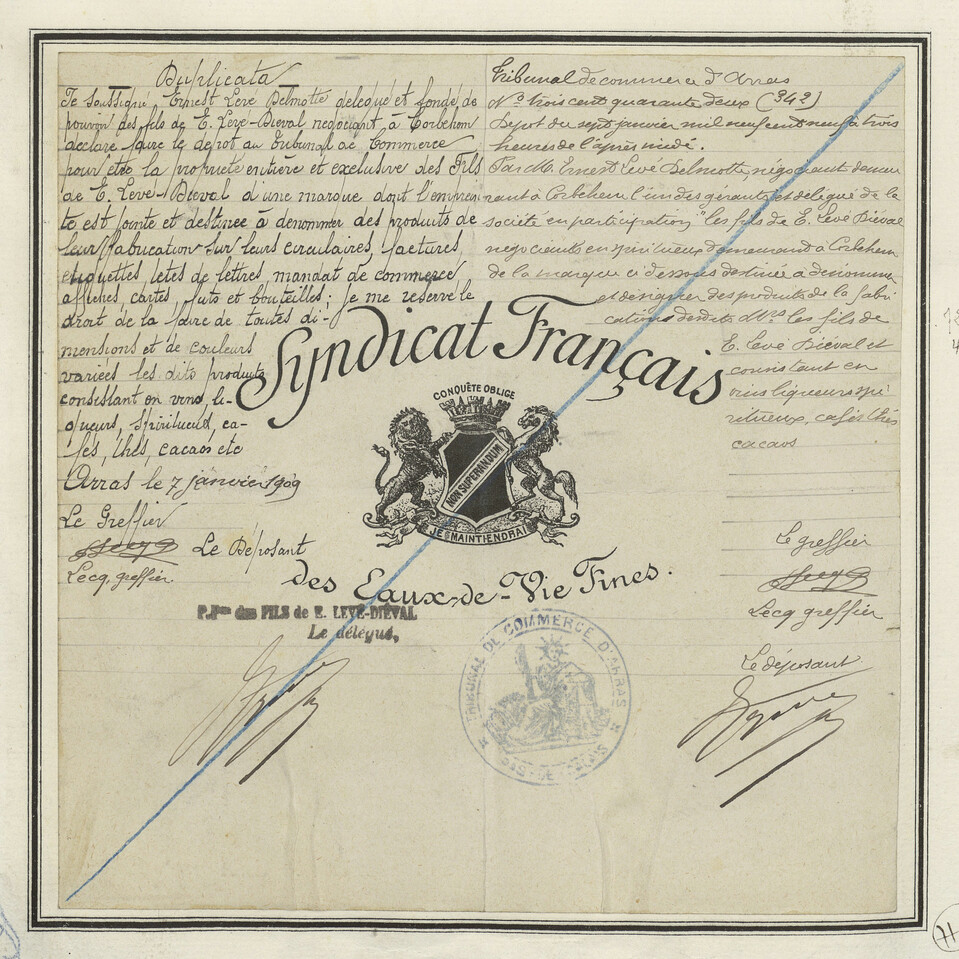 Duplicata
Je soussigné Ernest Levé Delmotte délégué et fondé de
pouvoir des fils de E. Levé-Diéval negociant à Corbehem
déclare faire le dépot au Tribunal de Commerce
pour être la propriété entière et exclusive des Fils
de E. Levé-Diéval d'une marque dont l'emprein
te est jointe et destinée à dénommer des produits de
leur fabrication sur leurs circulaires, factures,
etiquettes, têtes de lettres, mandat de commerce
affiches, cartes, futs et bouteilles; je me reserve le
droit de la faire de toutes di-
mensions et de couleurs
variées les dits produits
consistant en vins, li-
queurs, spiritueux, ca-
fés, thés, cacaos etc
Arras le 7 janvier 1909
Le Greffier
Lecq, greffier
Le Déposant
P.Pon des FILS de E. LEVÉ-DIÉVAL
Le délégué,
Tribunal de commerce d'Arras
No trois cent quarante deux (342)
Dépot du sept janvier mil neuf cent neuf à trois
heures de l'après midi.
Par M. Ernest Levé Delmotte, négociant demeu
rant à Corbehem l'un des gérants et délégué de la
société en participation "les fils de E. Levé Diéval
négociants en spiritueux demeurant à Corbehem
de la marque ci dessous destinée à dénommer
et désigner des produits de la fabri
cation desdits Mrs les fils de
E. Levé Diéval et
consistant en
vins liqueurs spi
ritueux, cafés thés
cacaos
Syndicat Français
CONQUÊTE OBLIGE
NON SUPERANDUM
JE MAINTIENDRAI
des Eaux-de-Vie Fines.
TRIBUNAL DE COMMERCE D'ARRAS
PAS-DE-CALAIS
Le greffier
Lecq greffier
Le déposant